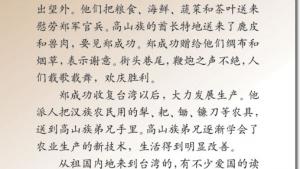 出望外。他们把粮食、海鲜、蔬菜和茶叶送来
慰劳郑军官兵。高山族的酋长特地送来了鹿皮
和兽肉，要见郑成功。郑成功赠给他们绸布和
烟草，表示谢意。街头巷尾，鞭炮之声不绝，人
们载歌载舞，欢庆胜利。
郑成功收复台湾以后，大力发展生产。他
派人把汉族农民用的犁、耙、锄、镰刀等农具，
送到高山族弟兄手里。高山族弟兄逐渐学会了
农业生产的新技术，生活得到明显改善。
从祖国内地来到台湾的，有不少爱国的读